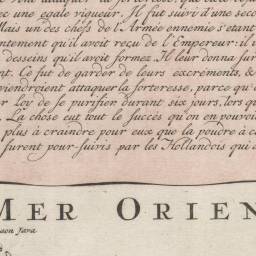 avec une egale vigueur. Il fut suivi d'une seco
Mais un des chefs de l'Armée ennemie s'etant
ntement qu'il avoit reçu de l'Empereur: il
desseins qu'il avoit formez. Il leur donna sur
nt. Ce fut de garder de leurs excréments, &
viendroient attaquer la forteresse, parce qu'
r loy de se purifier durant six jours, lors qu
La chose eut tout le succès qu'on en pouvoi
plus à craindre pour eux que la poudre à ca
furent pour-suivis par les Hollandois qui
MER ORIEN
Java